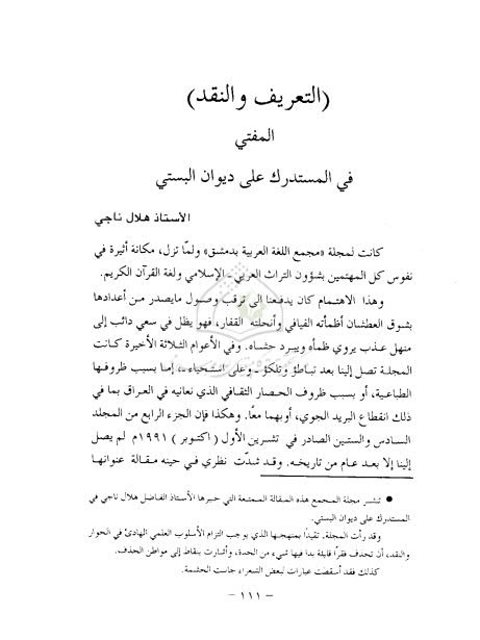 (التعريف والنقد)
المفتي
في المستدرك على ديوان البستي
الأستاذ هلال ناجي
كانت لمجلة «مجمع اللغة العربية بدمشق» ولمّا تزل، مكانة أثيرة في
نفوس كل المهتمين بشؤون التراث العربي ـ الإسلامي ولغة القرآن الكريم.
وهذا الاهتمام كان يدفعنا الى ترقب وصول مايصدر من أعدادها
بشوق العطشان أظمأته الفيافي وأنحلته القفار، فهو يظل في سعي دائب إلى
منهل عذب يروي ظمأه ويبرد حشاه. وفي الأعوام الثلاثة الأخيرة كانت
المجلة تصل إلينا بعد تباطؤ وتلكؤ ـ وعلى استحياء ـ، إما بسبب ظروفها
الطباعية، أو بسبب ظروف الحصار الثقافي الذي نعانيه في العراق بما في
ذلك انقطاع البريد الجوي، أوبهما معًا. وهكذا فإن الجزء الرابع من المجلد
السادس والستين الصادر في تشرين الأول (أكتوبر) ١٩٩١م لم يصل
إلينا إلا بعد عام من تاريخه. وقد شدّت نظري في حينه مقالة عنوانها
● تنشر مجلة المجمع هذه المقالة الممتعة التي حبرها الأستاذ الفاضل هلال ناجي في
المستدرك على ديوان البستي.
وقد رأت المجلة، تقيدًا بمنهجها الذي يوجب التزام الأسلوب العلمي الهادئ في الحوار
والنقد، أن تحذف فقرًا قليلة بدا فيها شيء من الحدة، وأشارت بنقاط إلى مواطن الحذف.
كذلك فقد أسقطت عبارات لبعض الشعراء جانبت الحشمة.
– ١١١ –